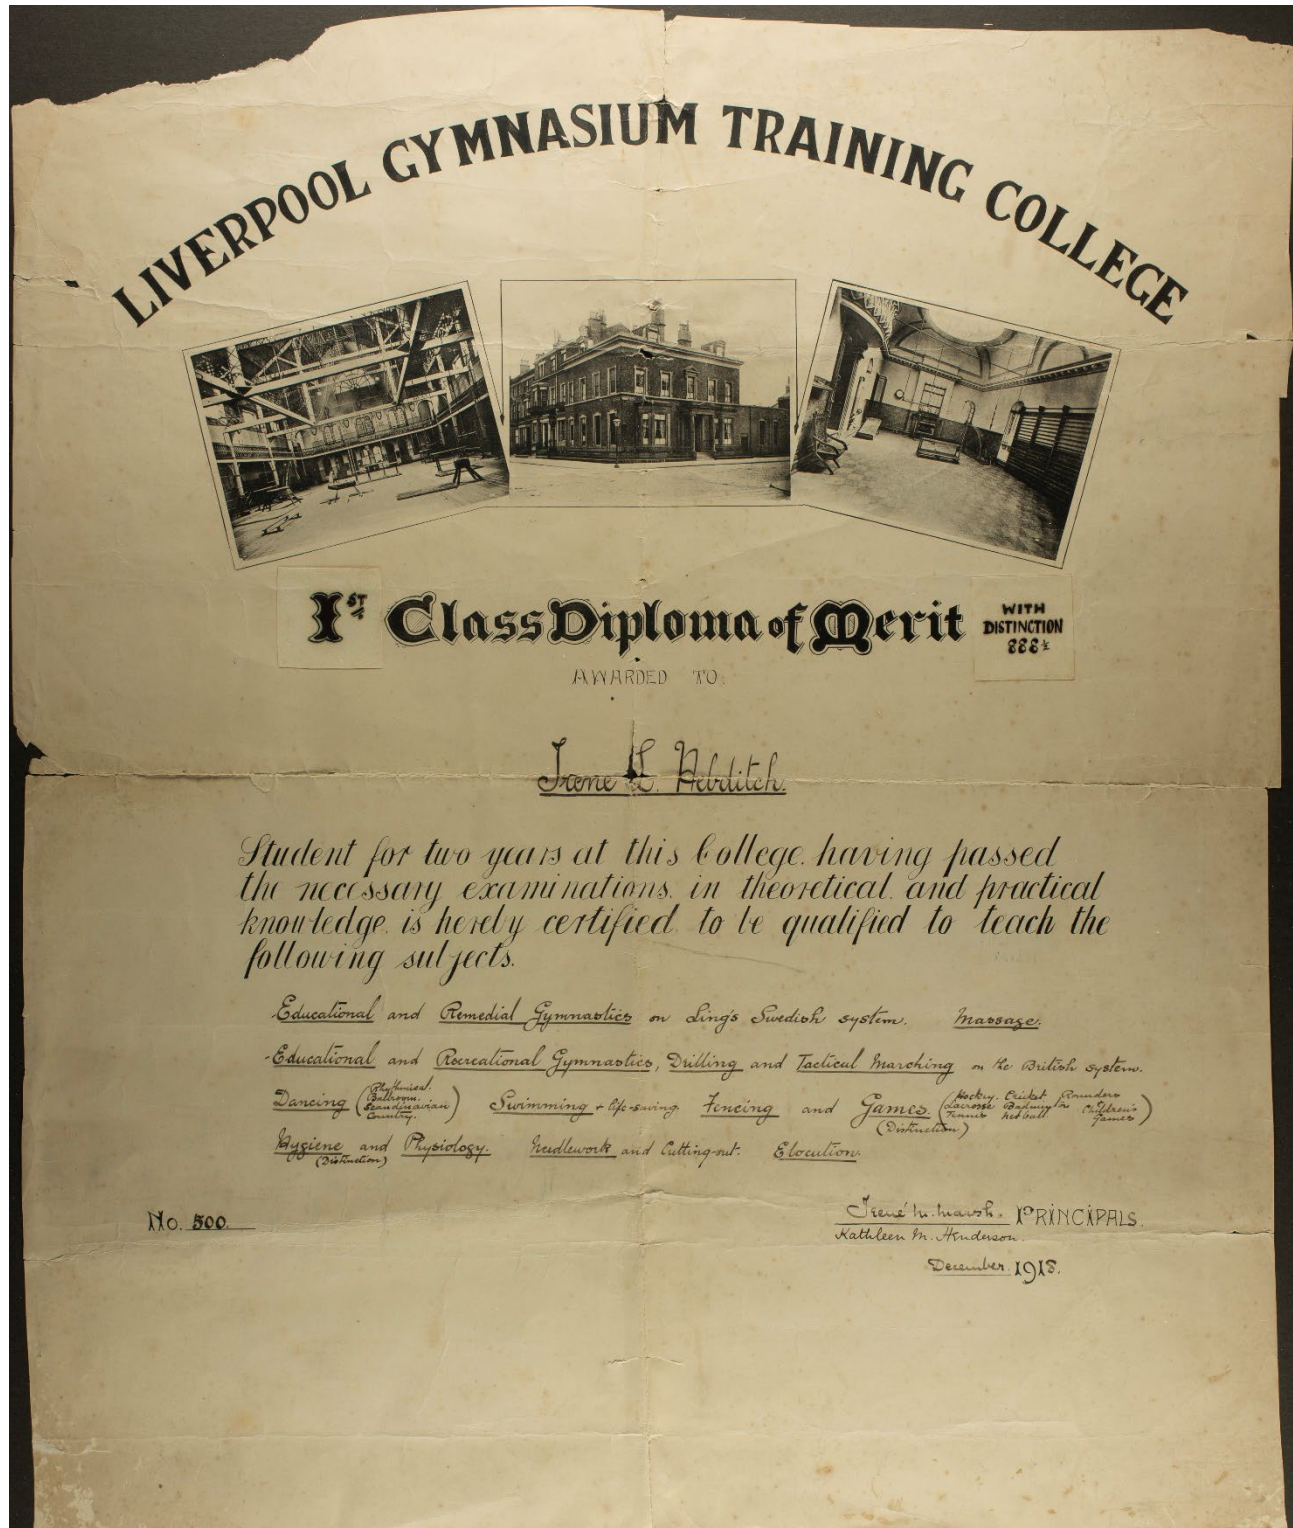 LIVERPOOL GYMNASIUM TRAINING COLLEGE
1ST Class Diploma of Merit
WITH
DISTINCTION
AWARDED TO:
Irene L. Hebditch.
Student for two years at this College. having passed
the necessary examinations. in theoretical. and practical
knowledge. is hereby certified. to be qualified to teach the
following subjects.
Educational and Remedial Gymnastics on Ling's Swedish system. Massage.
Educational and Recreational Gymnastics, Drilling and Tactical Marching on the British system.
Dancing (Rhythmical. Ballroom. Scandinavian Country.) Swimming + life-saving. Fencing and Games. (Hockey. Cricket Rounders Lacrosse Badminton Children's Tennis Netball Games)
(Distinction)
Hygiene and Physiology. Needlework and Cutting-out. Elocution.
(Distinction)
No. 500.
Irené M. Marsh. PRINCIPALS.
Kathleen M. Henderson.
December. 1918.